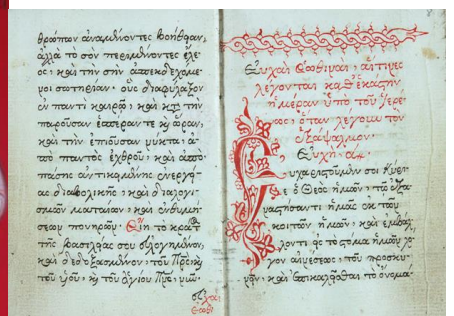 θρωπον ἀναμένοντες βοήθειαν,
ἀλλὰ τὸ σὸν περιμένοντες ἔλε
ος, καὶ τὴν σὴν ἀπεκδεχόμε
νοι σωτηρίαν, οὓς διαφύλαξον
ἐν παντὶ καιρῷ, καὶ κατὰ τὴν
παροῦσαν ἑσπέραν τε κ̀ ὥραν,
καὶ τὴν ἐπιοῦσαν νύκτα, ἀ
πὸ παντὸς ἐχθροῦ, καὶ ἀπὸ
πάσης ἀντικειμένης ἐνεργεί
ας διαβολικῆς, καὶ διαλογι
σμῶν ματαίων, καὶ ἐνθυμή
σεων πονηρῶν. Εἴη τὸ κράτ
τῆς βασιλείας σου εὐλογημένον,
καὶ δεδοξασμένον, τοῦ Πρς κ̀
τοῦ υἱοῦ, κ̀ τοῦ ἁγίου Πνς, νῦν
Εὐχαὶ Ἑωθιναὶ, αἵτινες
λέγονται καθ' ἑκάστην
ἡμέραν ὑπὸ τοῦ ἱερέ
ως, ὅταν λέγομεν τὸν
ἑξάψαλμον.
Εὐχὴ α΄.
Εὐχαριστοῦμέν σοι Κύρι
ε ὁ Θεὸς ἡμῶν, τῷ ἐξα
ναστήσαντι ἡμᾶς ἐκ τῶν
κοιτῶν ἡμῶν, καὶ ἐμβαλ
όντι εἰς τὸ στόμα ἡμῶν λό
γον αἰνέσεως, τοῦ προσκυ
νεῖν, καὶ ἐπικαλεῖσθαι τὸ ὄνομα